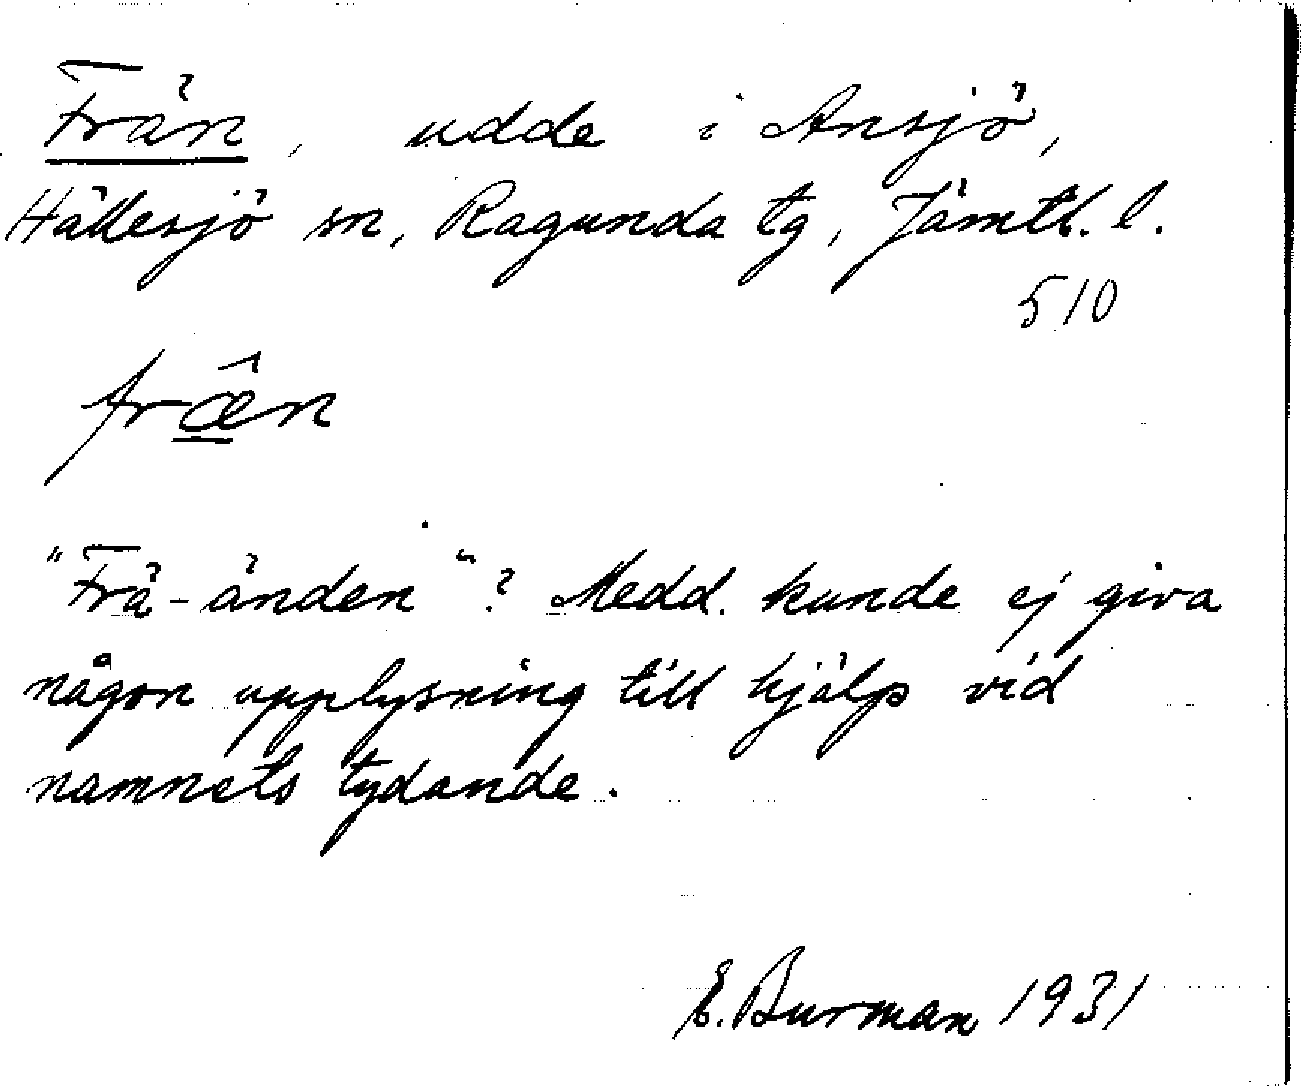 Från, udde i Ansjö,
Hällesjö sn, Ragunda tg, Jämtl. l.
510
fræ̂n
"Frä-änden"? Medd. kunde ej giva
någon upplysning till hjälp vid
namnets tydande.
E. Burman 1931